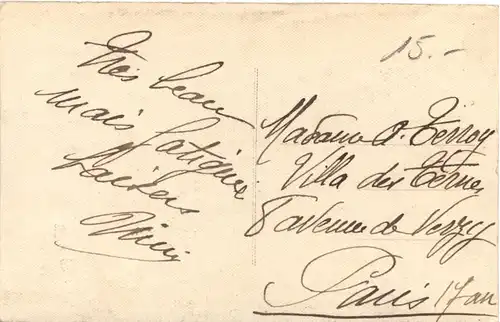 15.-
Très beau
mais fatiguée
baisers
Mimi
Madame d. Terroy
Villa des Ternes
8 avenue de Verzy
Paris 17 arr